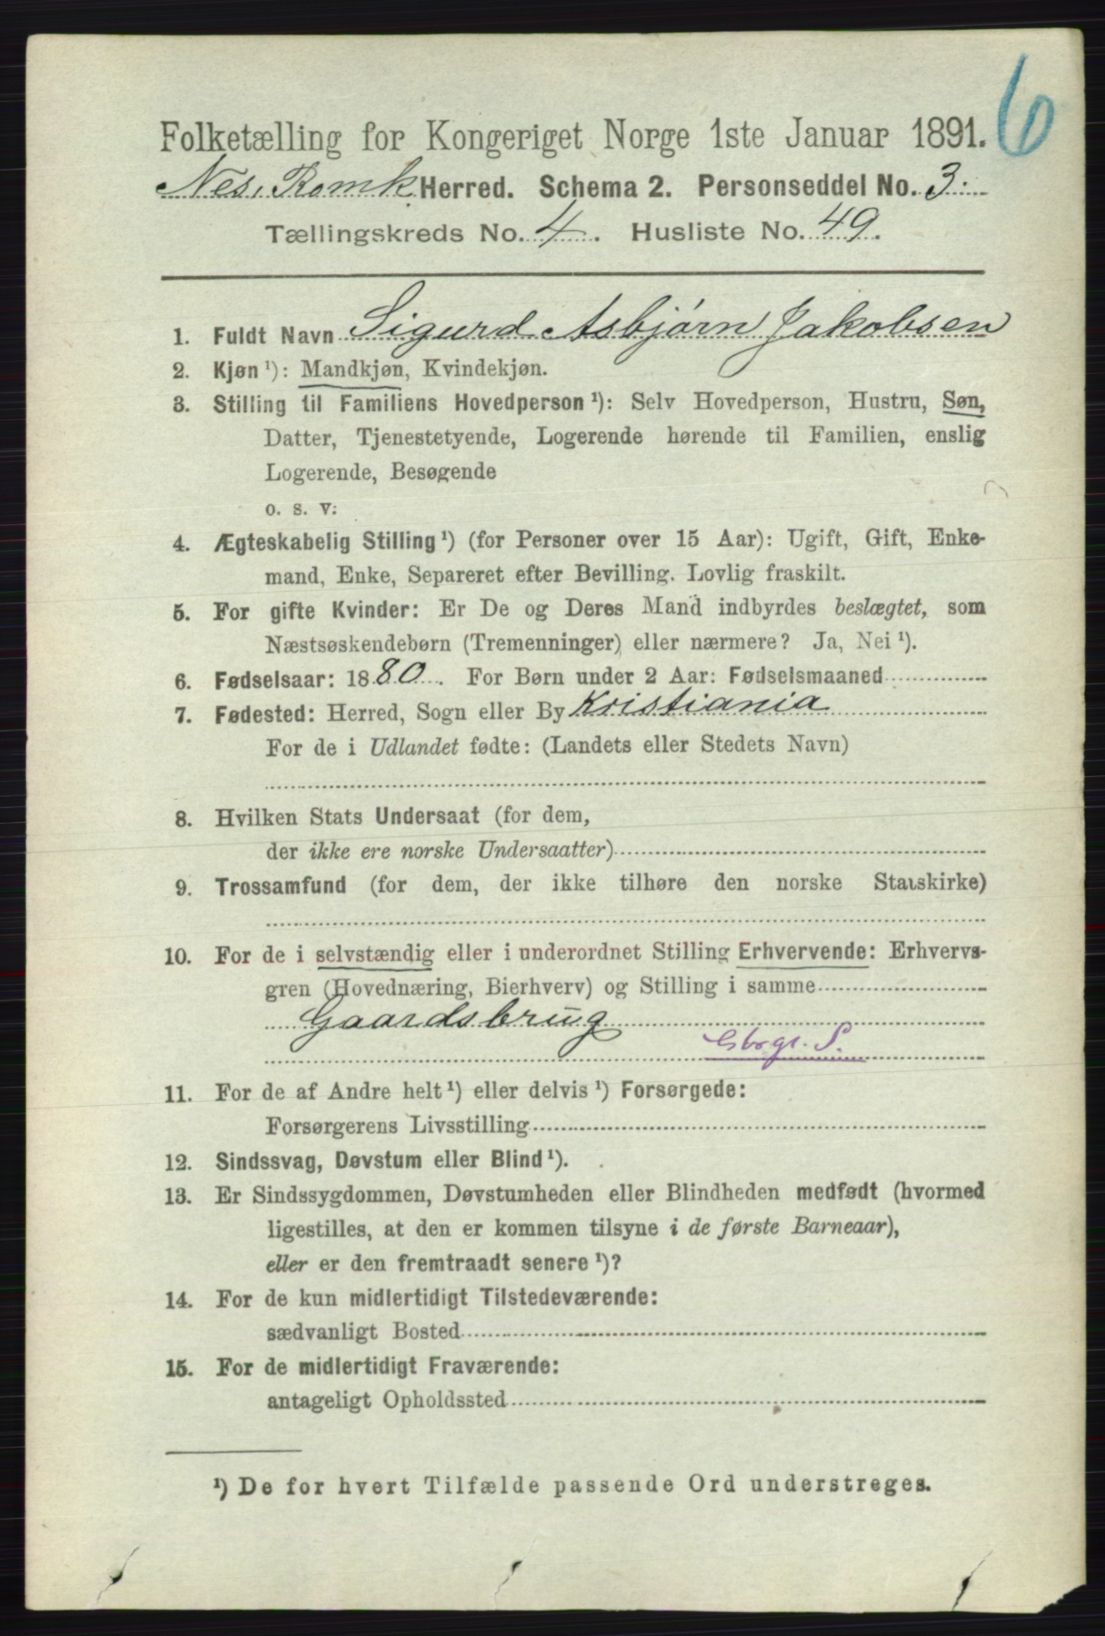 6
Folketælling for Kongeriget Norge 1ste Januar 1891.
Nes, Romk Herred. Schema 2. Personseddel No. 3.
Tællingskreds No. 4. Husliste No. 49.
1. Fuldt Navn Sigurd Asbjørn Jakobsen
2. Kjøn ¹): Mandkjøn, Kvindekjøn.
3. Stilling til Familiens Hovedperson ¹): Selv Hovedperson, Hustru, Søn,
Datter, Tjenestetyende, Logerende hørende til Familien, enslig
Logerende, Besøgende
o. s. v.
4. Ægteskabelig Stilling ¹) (for Personer over 15 Aar): Ugift, Gift, Enke-
mand, Enke, Separeret efter Bevilling. Lovlig fraskilt.
5. For gifte Kvinder: Er De og Deres Mand indbyrdes beslægtet, som
Næstsøskendebørn (Tremenninger) eller nærmere? Ja, Nei ¹).
6. Fødselsaar: 1880. For Børn under 2 Aar: Fødselsmaaned
7. Fødested: Herred, Sogn eller By Kristiania
For de i Udlandet fødte: (Landets eller Stedets Navn)
8. Hvilken Stats Undersaat (for dem,
der ikke ere norske Undersaatter)
9. Trossamfund (for dem, der ikke tilhøre den norske Statskirke)
10. For de i selvstændig eller i underordnet Stilling Erhvervende: Erhvervs-
gren (Hovednæring, Bierhverv) og Stilling i samme
Gaardsbrug
Gbrgr. S.
11. For de af Andre helt ¹) eller delvis ¹) Forsørgede:
Forsørgerens Livsstilling
12. Sindssvag, Døvstum eller Blind ¹).
13. Er Sindssygdommen, Døvstumheden eller Blindheden medfødt (hvormed
ligestilles, at den er kommen tilsyne i de første Barneaar),
eller er den fremtraadt senere ¹)?
14. For de kun midlertidigt Tilstedeværende:
sædvanligt Bosted
15. For de midlertidigt Fraværende:
antageligt Opholdssted
¹) De for hvert Tilfælde passende Ord understreges.